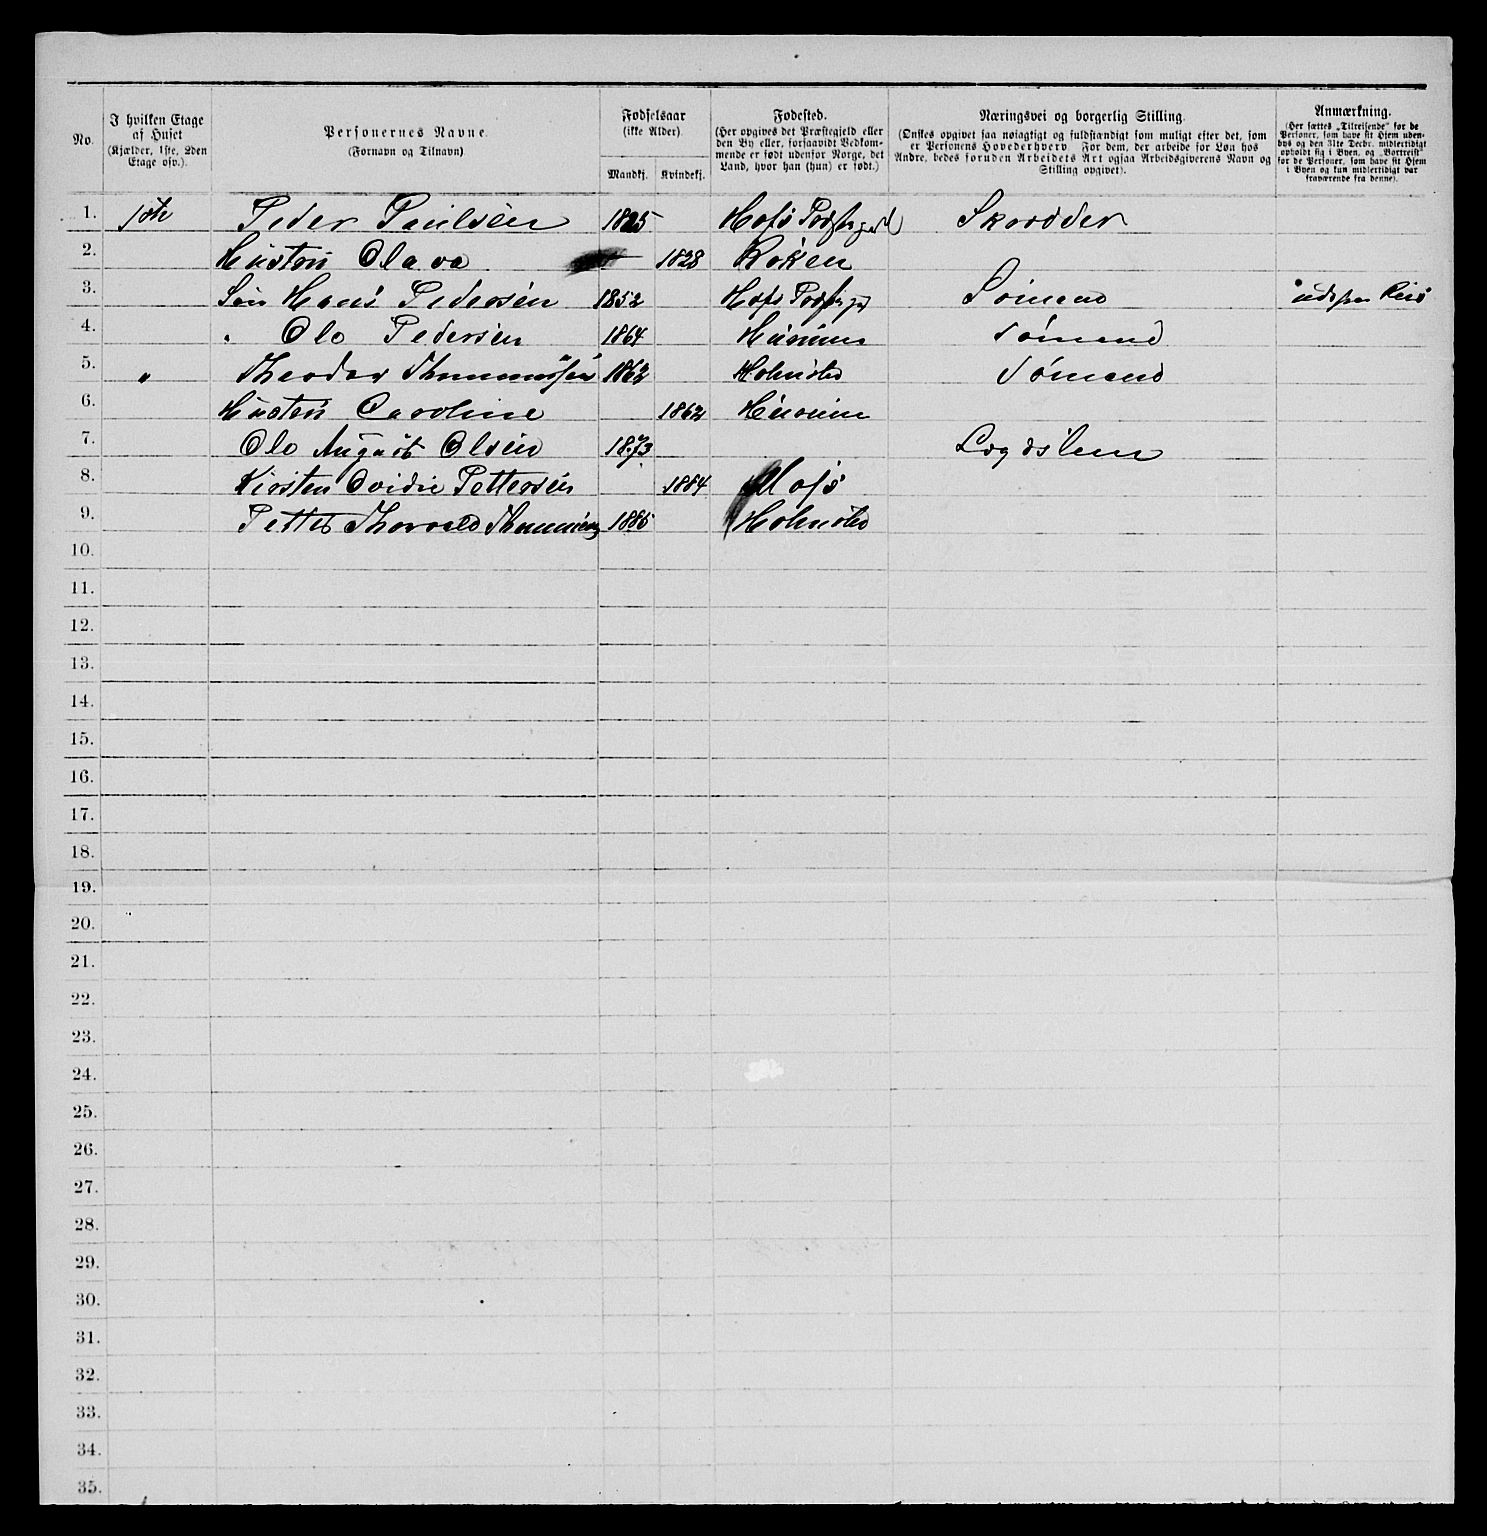 No.
I hvilken Etage af Huset (Kjælder, 1ste, 2den Etage osv.).
Personernes Navne. (Fornavn og Tilnavn)
Fødselsaar (ikke Alder). Mandkj. Kvindekj.
Fødested. (Her opgives det Præstegjeld eller den By eller, forsaavidt Vedkommende er født udenfor Norge, det Land, hvor han (hun) er født.)
Næringsvei og borgerlig Stilling. (Ønskes opgivet saa nøiagtigt og fuldstændigt som muligt efter det, som er Personens Hovederhverv For dem, der arbeide for Løn hos Andre, bedes foruden Arbeidets Art ogsaa Arbeidsgiverens Navn og Stilling opgivet).
Anmærkning. (Her sættes „Tilreisende" for de Personer, som have sit Hjem udenbys og den 31te Decbr. midlertidigt opholdt sig i Byen, og „Bortreist" for de Personer, som have sit Hjem i Byen og kun midlertidigt var fraværende fra denne).
1. 1ste Peder Paulsen 1825 Hofs Skrædder
2. Hustru Olava 1828 Røken
3. Søn Hans Pedersen 1852 Hofs Sømand
4. " Ole Pedersen 1864 Hurum Sømand
5. " Theodor 1862 Holmsbo Sømand
6. Hustru Caroline 1862 Hurum
7. Ole August Olsen 1873 Lægdslem
8. Kirsten Ovidie Pettersen 1884
9. Petter Thorvald 1886 Holmsbo
10.
11.
12.
13.
14.
15.
16.
17.
18.
19.
20.
21.
22.
23.
24.
25.
26.
27.
28.
29.
30.
31.
32.
33.
34.
35.